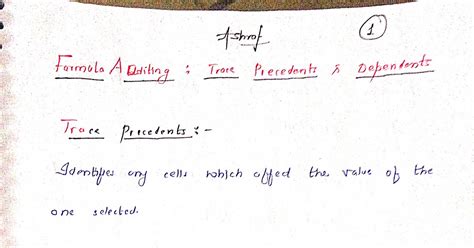 Ashrof
1
Formula Auditing : Trace Precedents & Dependents
Trace Precedents :-
Identifies any cells which affect the value of the
one selected.